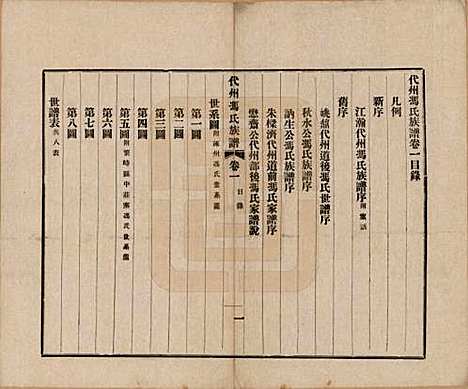 代州馮氏族譜卷一目錄
凡例
新序
江瀚代州馮氏族譜序
舊序
代州道後馮氏世譜序
秋水公馮氏族譜序
訥生公馮氏族譜序
朱樑濟代州道前馮氏家譜序
懋齋公代州部後馮氏家譜說
代州馮氏族譜
卷一
目錄
一
世系圖
第一圖
第二圖
第三圖
第四圖
第五圖
第六圖
第七圖
第八圖
世譜表共八表